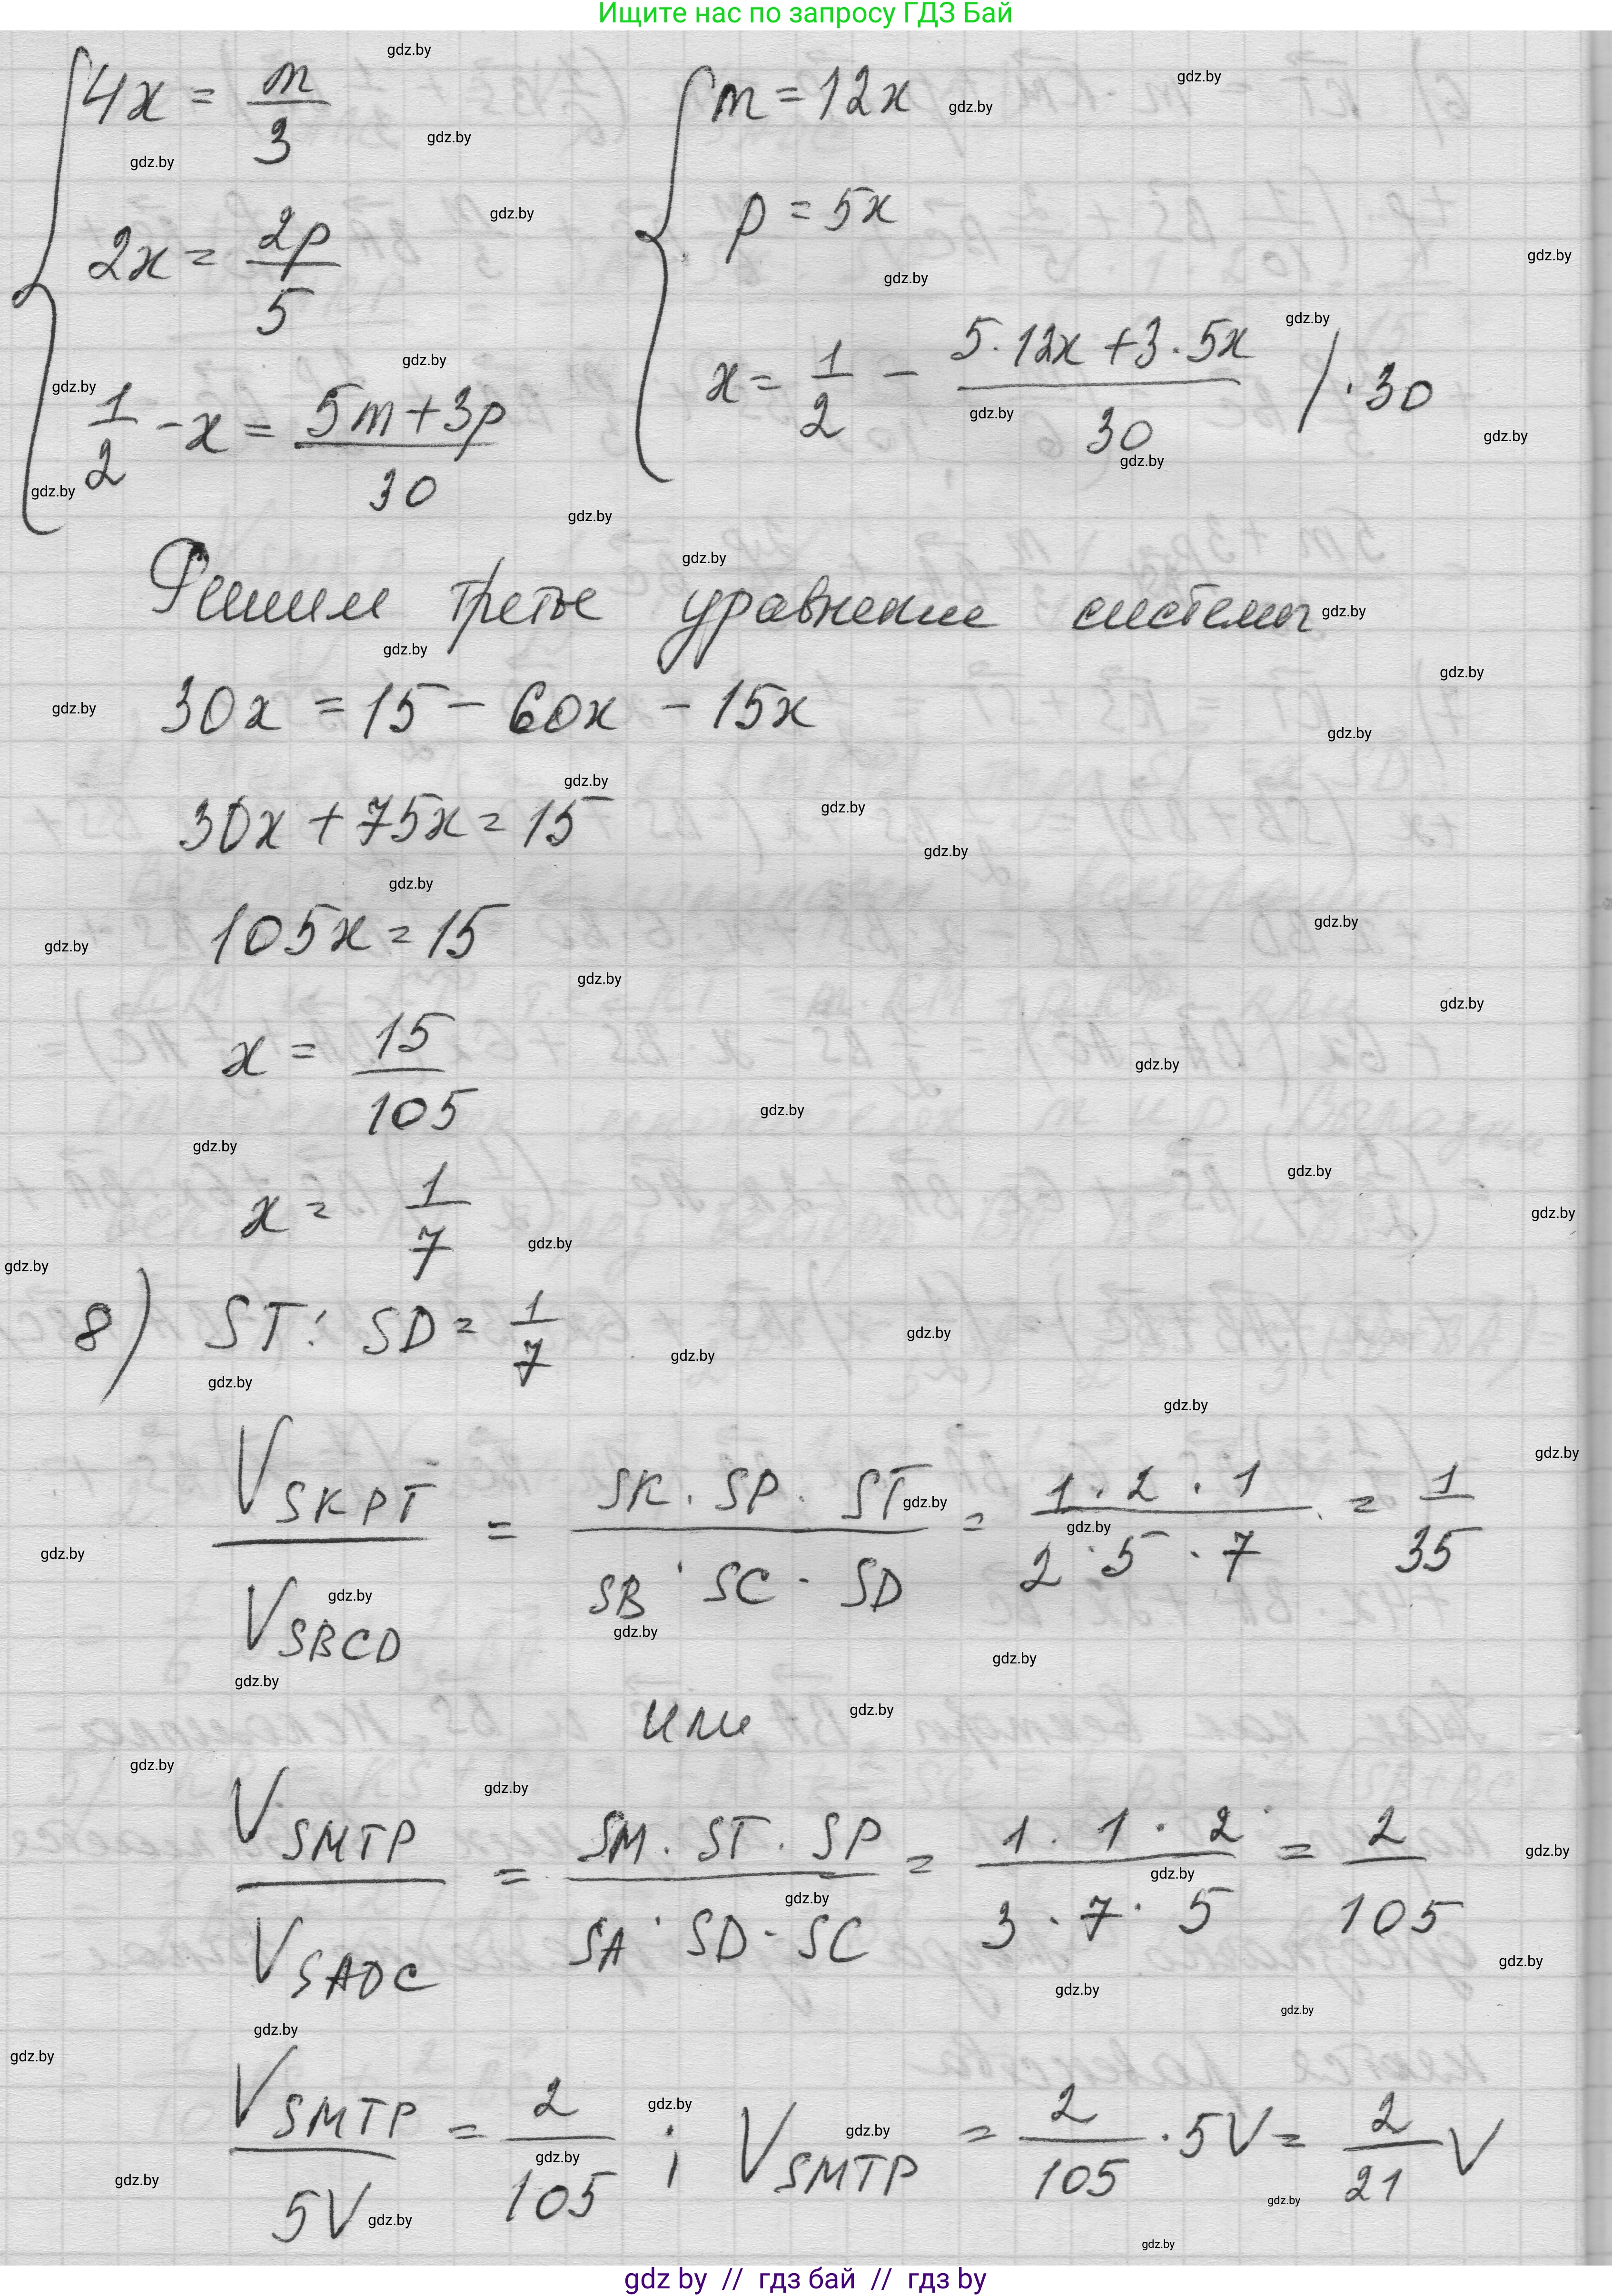 Ищите нас по запросу ГДЗ Бай
4x = m/3
2x = 2p/5
1/2 - x = (5m+3p)/30
m = 12x
p = 5x
x = 1/2 - (5·12x+3·5x)/30 /·30
Решим третье уравнение системы
30x = 15 - 60x - 15x
30x + 75x = 15
105x = 15
x = 15/105
x = 1/7
8) ST : SD = 1/7
V SKPT / V SBCD = (SK · SP · ST)/(SB · SC · SD) = (1 · 2 · 1)/(2 · 5 · 7) = 1/35
или
V SMTP / V SADC = (SM · ST · SP)/(SA · SD · SC) = (1 · 1 · 2)/(3 · 7 · 5) = 2/105
V SMTP / 5V = 2/105 ; V SMTP = 2/105 · 5V = 2/21 V
gdz.by
gdz by // гдз бай // гдз by